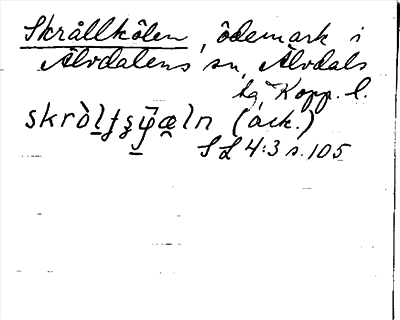 Skrållkölen, ödemark i
Älvdalens sn, Älvdals
hd, Kopp. l.
(ack.)
SL 4:3 s. 105